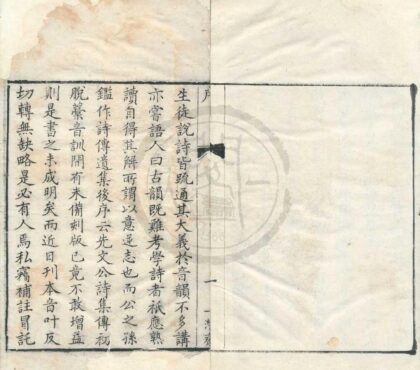 生徒說詩皆疏通其大義於音韻不多講
亦嘗語人曰古韻既難考學詩者祇應熟
讀自得其解所謂以意逆志也而公之孫
鑑作詩傳遺集後序云先文公詩集傳視
脫纂音訓間有未備刻版已竟不敢增益
則是書之未成明矣而近日刊本音叶反
切轉無缺略是必有人焉私竊補註冒託
序
一